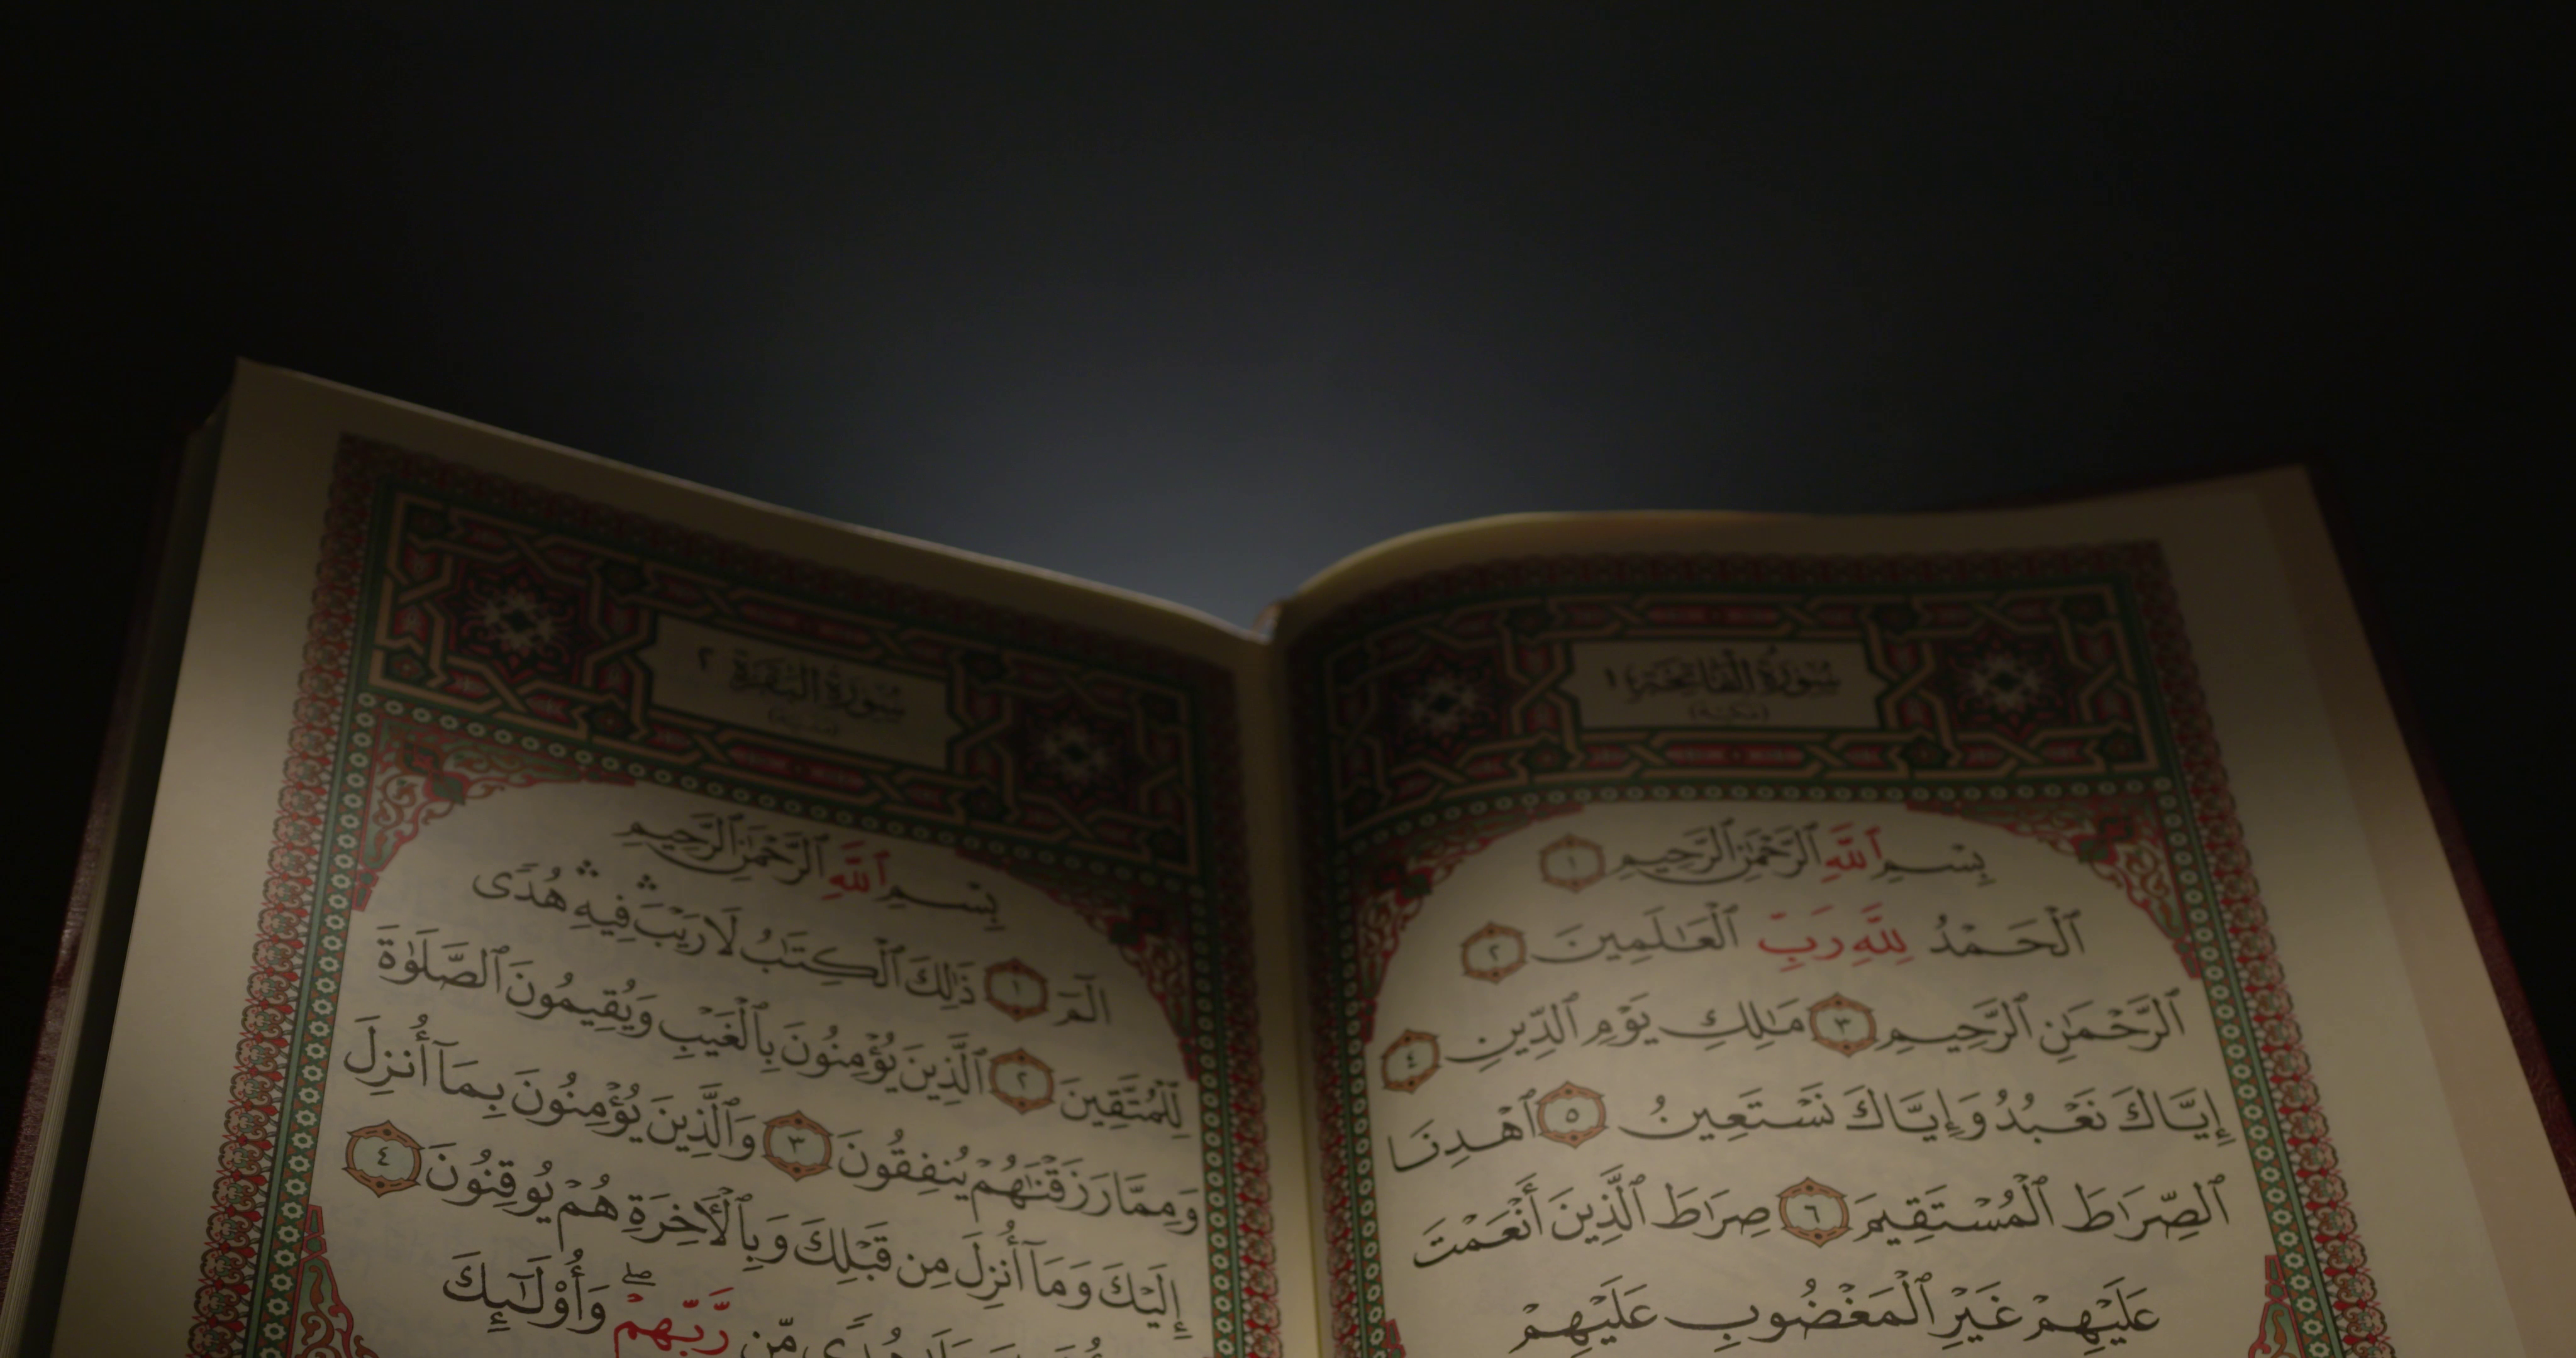 سُورَةُ الْفَاتِحَةِ ١
(مكية)
بِسْمِ ٱللَّهِ ٱلرَّحْمَٰنِ ٱلرَّحِيمِ ١
ٱلْحَمْدُ لِلَّهِ رَبِّ ٱلْعَٰلَمِينَ ٢
ٱلرَّحْمَٰنِ ٱلرَّحِيمِ ٣ مَٰلِكِ يَوْمِ ٱلدِّينِ ٤
إِيَّاكَ نَعْبُدُ وَإِيَّاكَ نَسْتَعِينُ ٥ ٱهْدِنَا
ٱلصِّرَٰطَ ٱلْمُسْتَقِيمَ ٦ صِرَٰطَ ٱلَّذِينَ أَنْعَمْتَ
عَلَيْهِمْ غَيْرِ ٱلْمَغْضُوبِ عَلَيْهِمْ
سُورَةُ الْبَقَرَةِ ٢
(مدنية)
بِسْمِ ٱللَّهِ ٱلرَّحْمَٰنِ ٱلرَّحِيمِ
الٓمٓ ١ ذَٰلِكَ ٱلْكِتَٰبُ لَا رَيْبَ ۛ فِيهِ ۛ هُدًى
لِّلْمُتَّقِينَ ٢ ٱلَّذِينَ يُؤْمِنُونَ بِٱلْغَيْبِ وَيُقِيمُونَ ٱلصَّلَوٰةَ
وَمِمَّا رَزَقْنَٰهُمْ يُنفِقُونَ ٣ وَٱلَّذِينَ يُؤْمِنُونَ بِمَآ أُنزِلَ
إِلَيْكَ وَمَآ أُنزِلَ مِن قَبْلِكَ وَبِٱلْءَاخِرَةِ هُمْ يُوقِنُونَ ٤
مِّن رَّبِّهِمْ ۖ وَأُو۟لَٰٓئِكَ